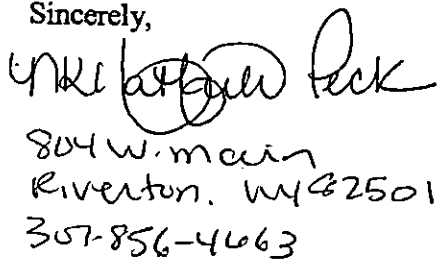 Sincerely,
Peck
804 W. Main
Riverton. WY 82501
307-856-4663